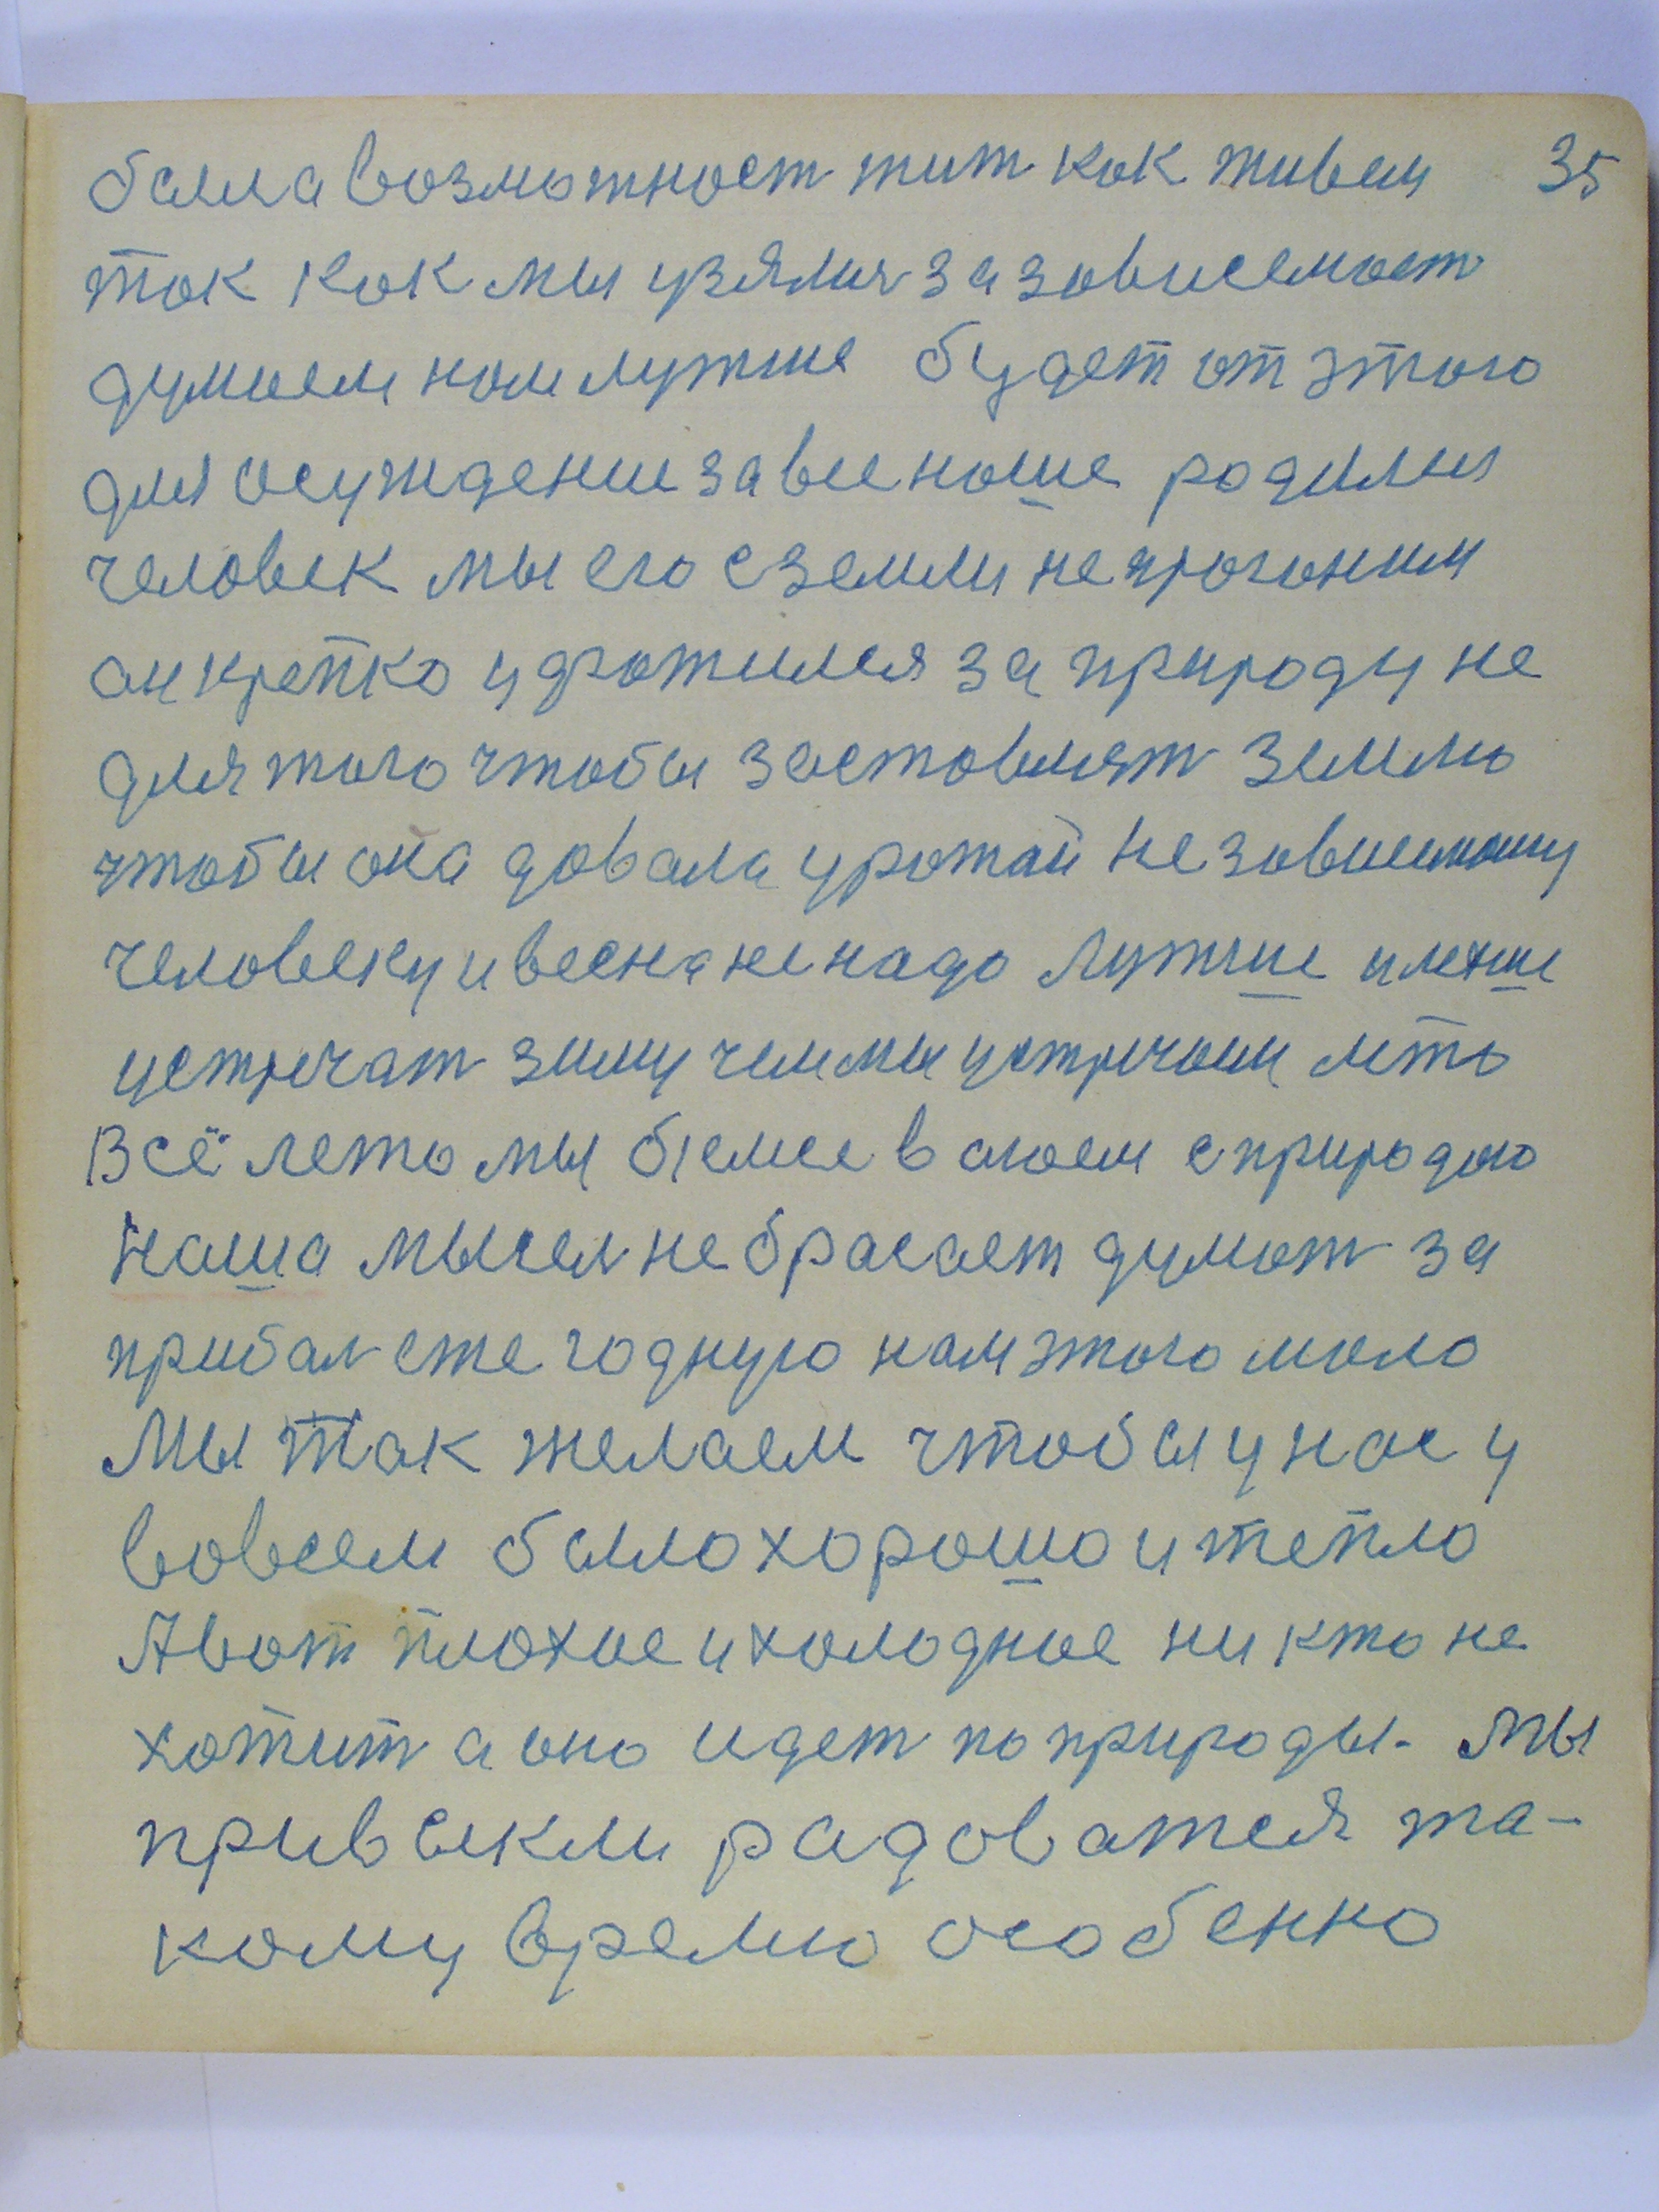 была возможност жит как живем 35
так как мы узялис за зависемост
думаем нам лутше будет от этого
для осуждение за все наше родилис
человек мы его с земли не прогоним
он крепко удружился за природу не
для того чтобы заставлят землю
чтобы она давала урожай не зависимому
человеку и весна не надо лутше и легше
устречат зиму чем мы устречаем лето
Всё лето мы бемся в своем с природою
наша мысел не брасает думат за
прибал ежегодную нам этого мало
Мы так желаем чтобы у нас у
вовсем было хорошо и тепло
А вот плохое и холодное ни кто не
хотит а оно идет по природы. Мы
привыкли радоватся та-
кому время особенно